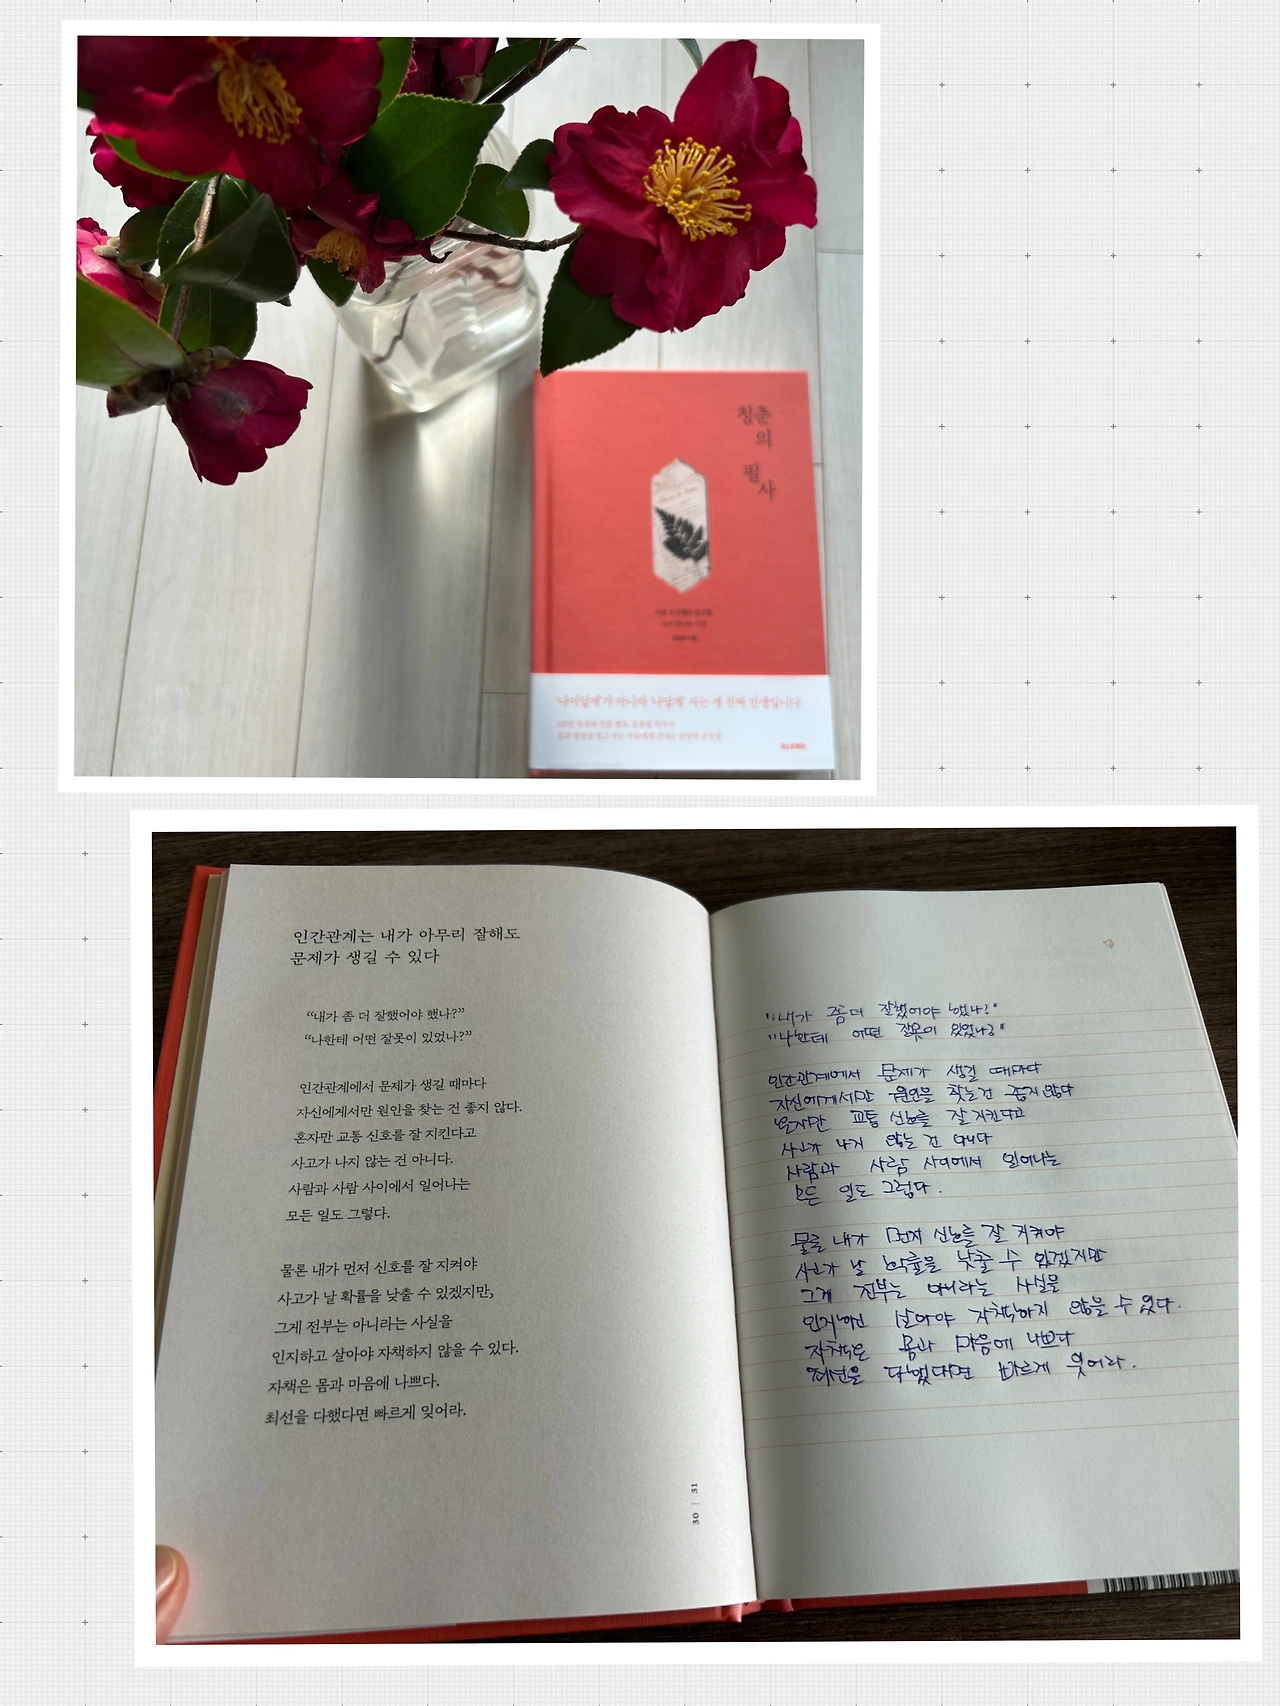 청춘
의
필
사
'나이답게'가 아니라 '나답게' 사는 게 진짜 인생입니다
인간관계는 내가 아무리 잘해도
문제가 생길 수 있다
“내가 좀 더 잘했어야 했나?”
“나한테 어떤 잘못이 있었나?”
인간관계에서 문제가 생길 때마다
자신에게서만 원인을 찾는 건 좋지 않다.
혼자만 교통 신호를 잘 지킨다고
사고가 나지 않는 건 아니다.
사람과 사람 사이에서 일어나는
모든 일도 그렇다.
물론 내가 먼저 신호를 잘 지켜야
사고가 날 확률을 낮출 수 있겠지만,
그게 전부는 아니라는 사실을
인지하고 살아야 자책하지 않을 수 있다.
자책은 몸과 마음에 나쁘다.
최선을 다했다면 빠르게 잊어라.
30 | 31
"내가 좀 더 잘했어야 했나?"
"나한테 어떤 잘못이 있었나?"
인간관계에서 문제가 생길 때마다
자신에게서만 원인을 찾는 건 좋지 않다
혼자만 교통 신호를 잘 지킨다고
사고가 나지 않는 건 아니다
사람과 사람 사이에서 일어나는
모든 일도 그렇다.
물론 내가 먼저 신호를 잘 지켜야
사고가 날 확률을 낮출 수 있겠지만
그게 전부는 아니라는 사실을
인지하고 살아야 자책하지 않을 수 있다.
자책은 몸과 마음에 나쁘다
최선을 다했다면 빠르게 잊어라.